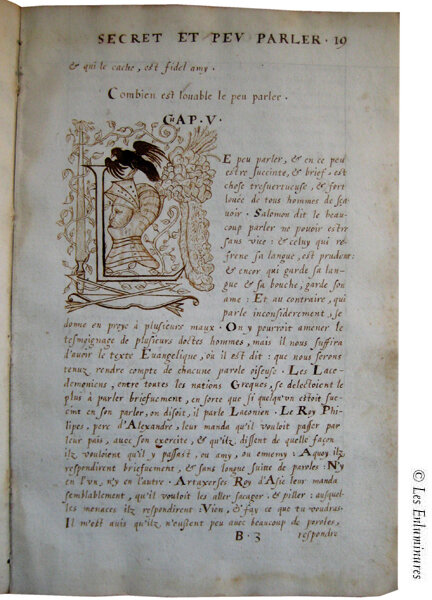 SECRET ET PEV PARLER · 19
& qui le cache, est fidel amy.
Combien est louable le peu parler.
CHAP. V.
LE peu parler, & en ce peu
estre succinte, & brief, est
chose tresvertueuse, & fort
louée de tous hommes de sça-
uoir. Salomon dit le beau-
coup parler ne pouuoir estre
sans vice: & celuy qui re-
frene sa langue, est prudent:
& encor qui garde sa lan-
gue & sa bouche, garde son
ame: Et au contraire, qui
parle inconsiderement, se
donne en proye à plusieurs maux. On y pourroit amener le
tesmoignage de plusieurs doctes hommes, mais il nous suffira
d'auoir le texte Euangelique, où il est dit: que nous serons
tenuz rendre compte de chacune parole oiseuse. Les Lace-
demoniens, entre toutes les nations Greques, se delectoient le
plus à parler briefuement, en sorte que si quelqu'vn estoit suc-
cint en son parler, on disoit, il parle Laconien. Le Roy Phi-
lipes, pere d'Alexandre, leur manda qu'il vouloit passer par
leur pais, auec son exercite, & qu'ilz dissent de quelle façon
ilz vouloient qu'il y passast, ou amy, ou ennemy: Aquoy ilz
respondirent briefuement, & sans longue suitte de paroles: N'y
en l'vn, n'y en l'autre. Artaxerses Roy d'Asie leur manda
semblablement, qu'il vouloit les aller sacager, & piller: ausquel-
les menaces ilz respondirent: Vien, & fay ce que tu voudras.
Il m'est auis qu'ilz n'eussent peu auec beaucoup de paroles,
B · 3
respondre
© Les Enluminures